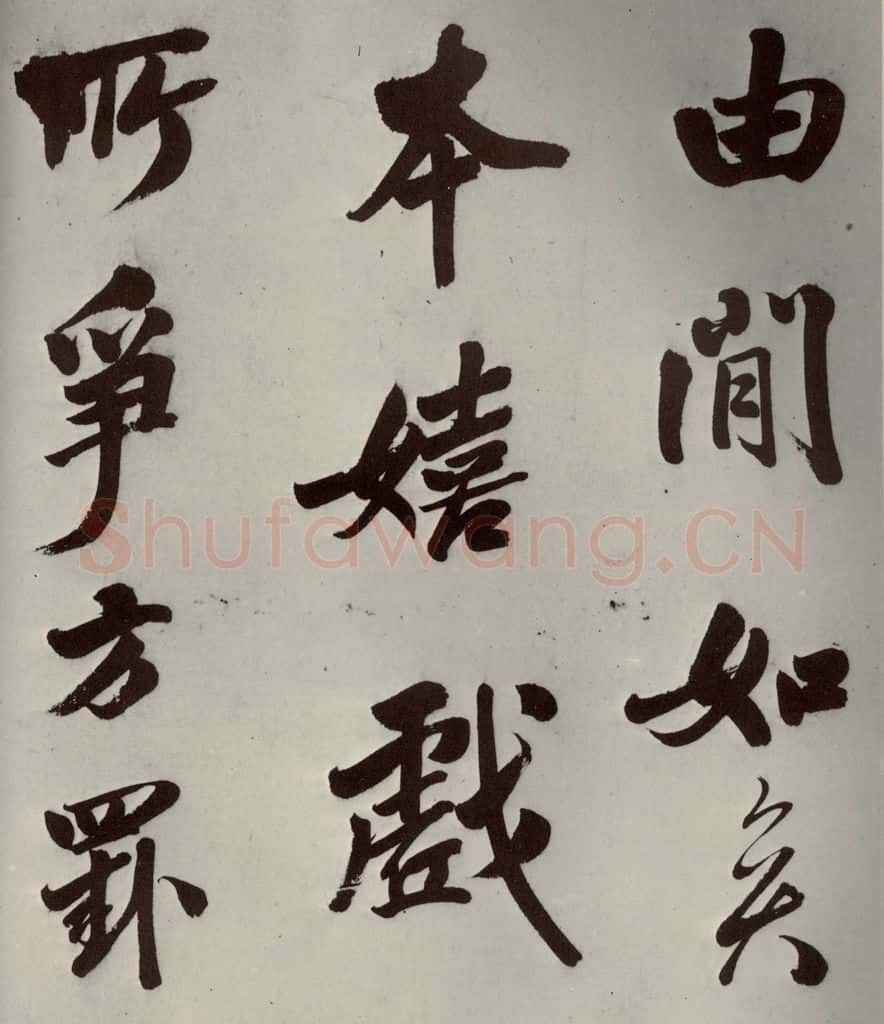 由閒如
本嬉戲
所爭方罫
Shufawang.CN